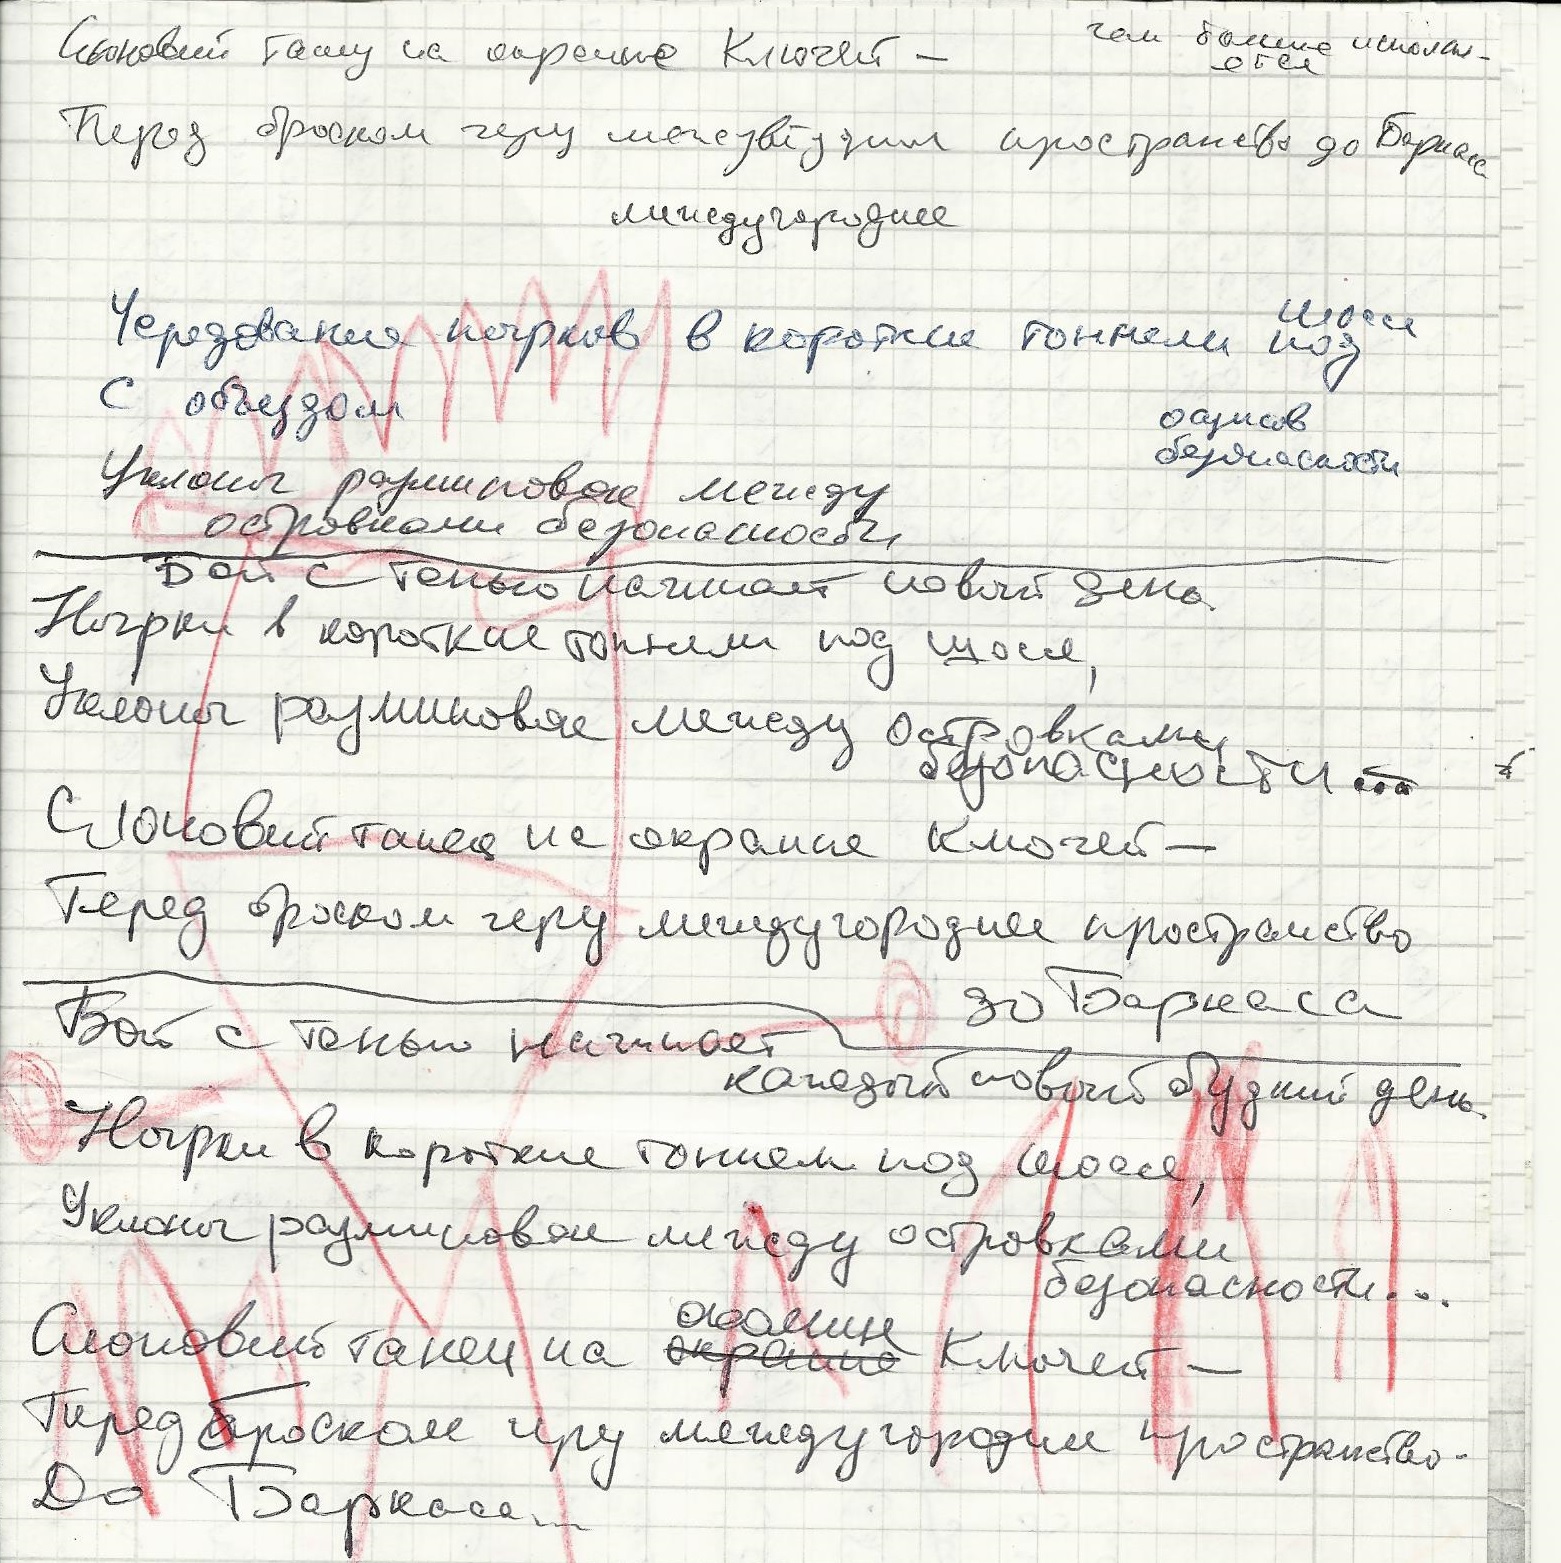 Слоновий танец на окраине Ключей —
чем больше исполня-
ется
Перед броском через междугороднее пространство до Баркаса
междугороднее
Чередование нырков в короткие тоннели под
шоссе
С объездом
островков
безопасности
Уклоны разминовок между
островками безопасности
Бой с тенью начинает новый день.
Нырки в короткие тоннели под шоссе,
Уклоны разминовок между островками
безопасности...
Слоновий танец на окраине Ключей —
Перед броском через междугороднее пространство
до Баркаса
Бой с тенью начинает
каждый новый будний день.
Нырки в короткие тоннели под шоссе,
Уклоны разминовок между островками
безопасности...
Слоновий танец на окраине Ключей —
Перед броском через междугороднее пространство
До Баркаса...